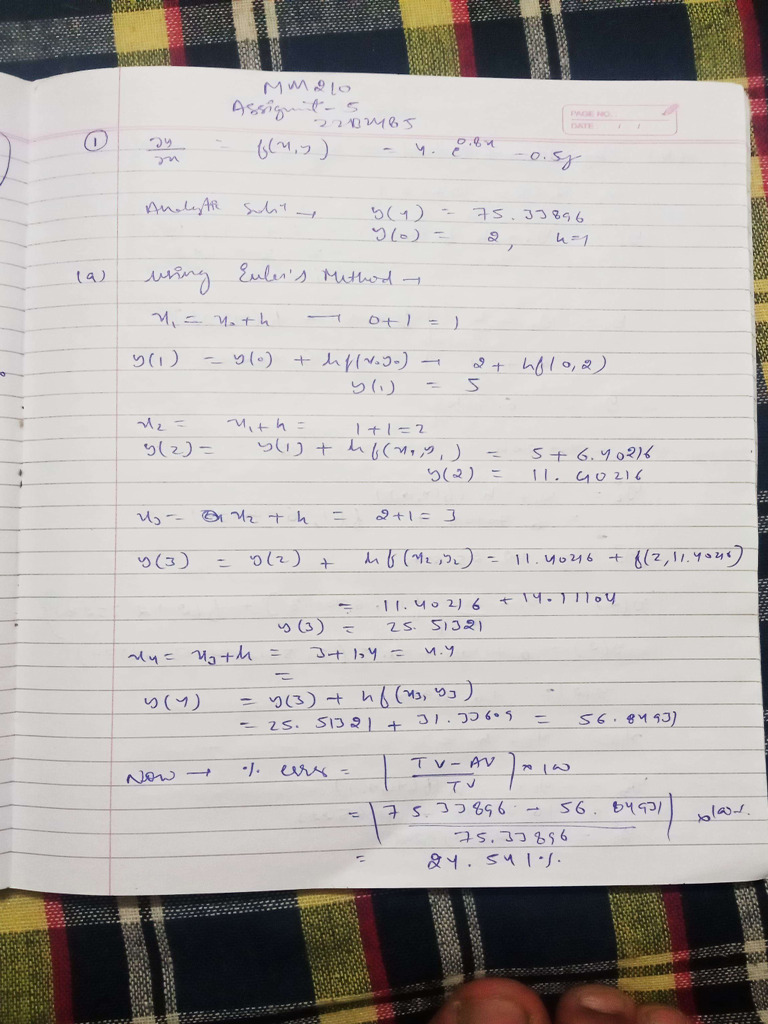 MM210
Assignmt - 5
PAGE NO.
DATE: / /
① ∂y/∂x = f(x,y) = 4. e^0.8x - 0.5y
y(4) = 75.33896
y(0) = 2, h=1
(a) using Euler's Method →
x₁ = x₀ + h → 0+1 = 1
y(1) = y(0) + hf(x₀y₀) → 2 + hf(0,2)
y(1) = 5
x₂ = x₁+h = 1+1=2
y(2) = y(1) + hf(x₁,y₁) = 5 + 6.40216
y(2) = 11.40216
x₃ = x₂ + h = 2+1 = 3
y(3) = y(2) + hf(x₂,y₂) = 11.40216 + f(2,11.40216)
= 11.40216 + 14.11104
y(3) = 25.51321
x₄ = x₃+h = 3+1.4 = 4.4
=
y(4) = y(3) + hf(x₃, y₃)
= 25.51321 + 31.33609 = 56.84931
Now → % error = |TV-AV / TV| × 100
= |75.33896 - 56.84931 / 75.33896| × 100%
= 24.541%